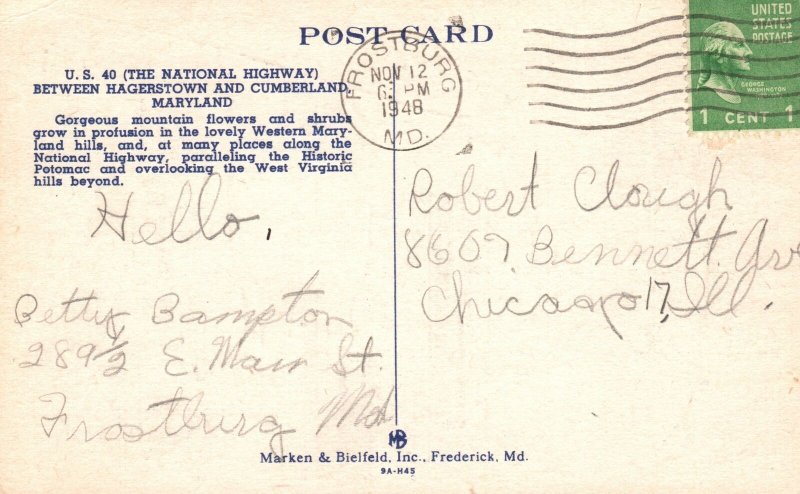 POST CARD
UNITED
STATES
POSTAGE
GEORGE
WASHINGTON
1 CENT 1
FROSTBURG
NOV 12
6 PM
1948
MD.
U. S. 40 (THE NATIONAL HIGHWAY)
BETWEEN HAGERSTOWN AND CUMBERLAND,
MARYLAND
Gorgeous mountain flowers and shrubs
grow in profusion in the lovely Western Mary-
land hills, and, at many places along the
National Highway, paralleling the Historic
Potomac and overlooking the West Virginia
hills beyond.
Hello,
Betty Bampton
289½ E. Main St.
Frostburg Md
Robert Clough
8607 Bennett Ave
Chicago 17, Ill.
MB
Marken & Bielfeld, Inc., Frederick, Md.
9A-H45